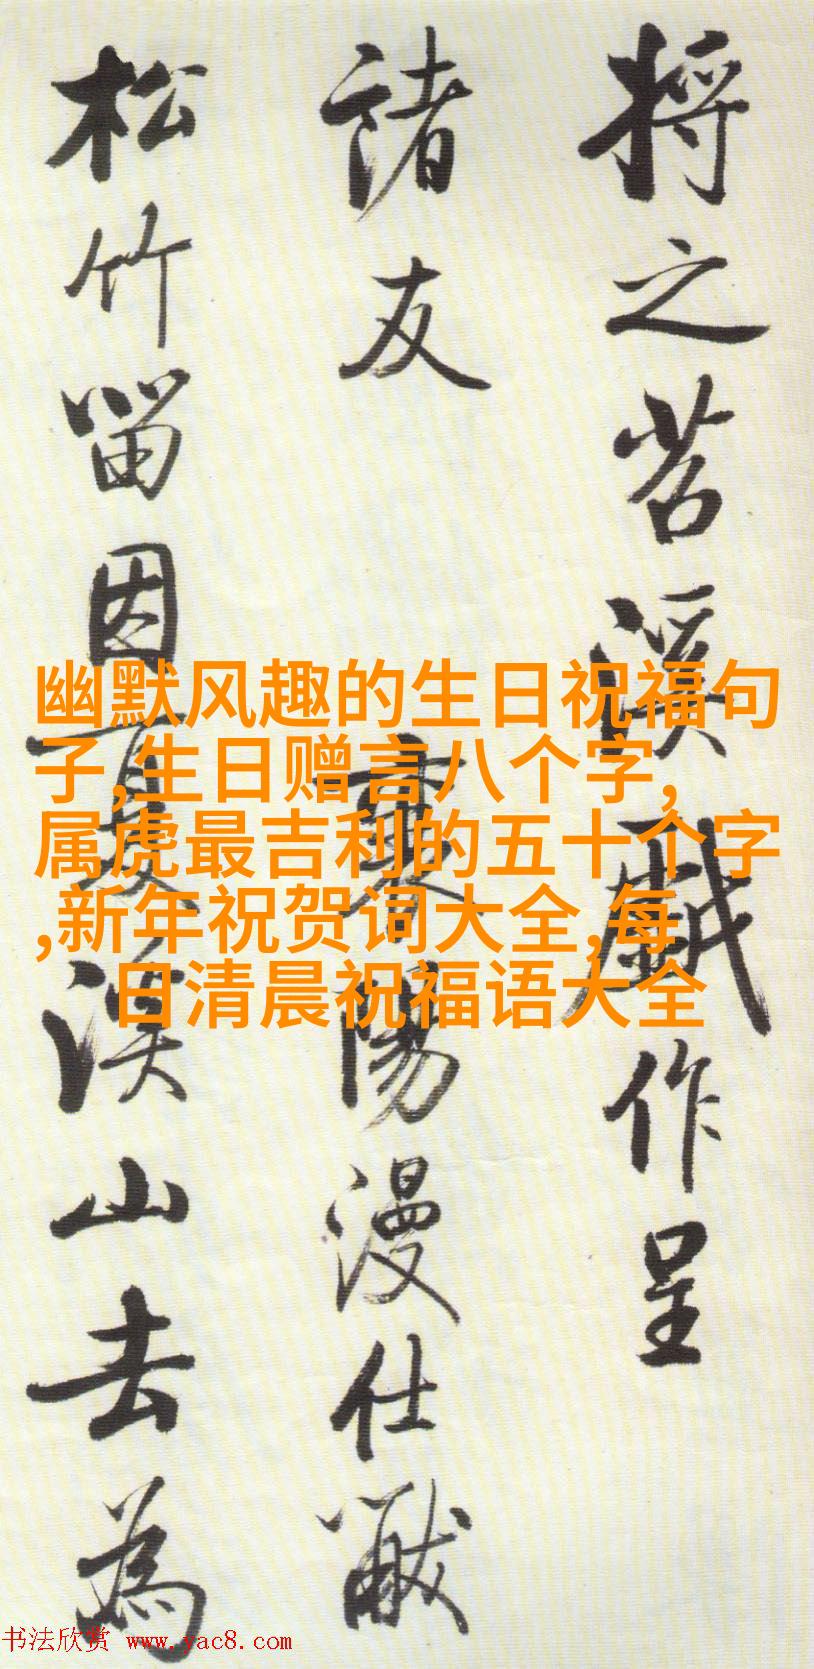 将之苕溪戲作呈
諸友
襄陽漫仕黻
松竹留因夏溪山去為
幽默风趣的生日祝福句
子,生日赠言八个字,
属虎最吉利的五十个字
,新年祝贺词大全,每
日清晨祝福语大全
书法欣赏 www.yac8.com